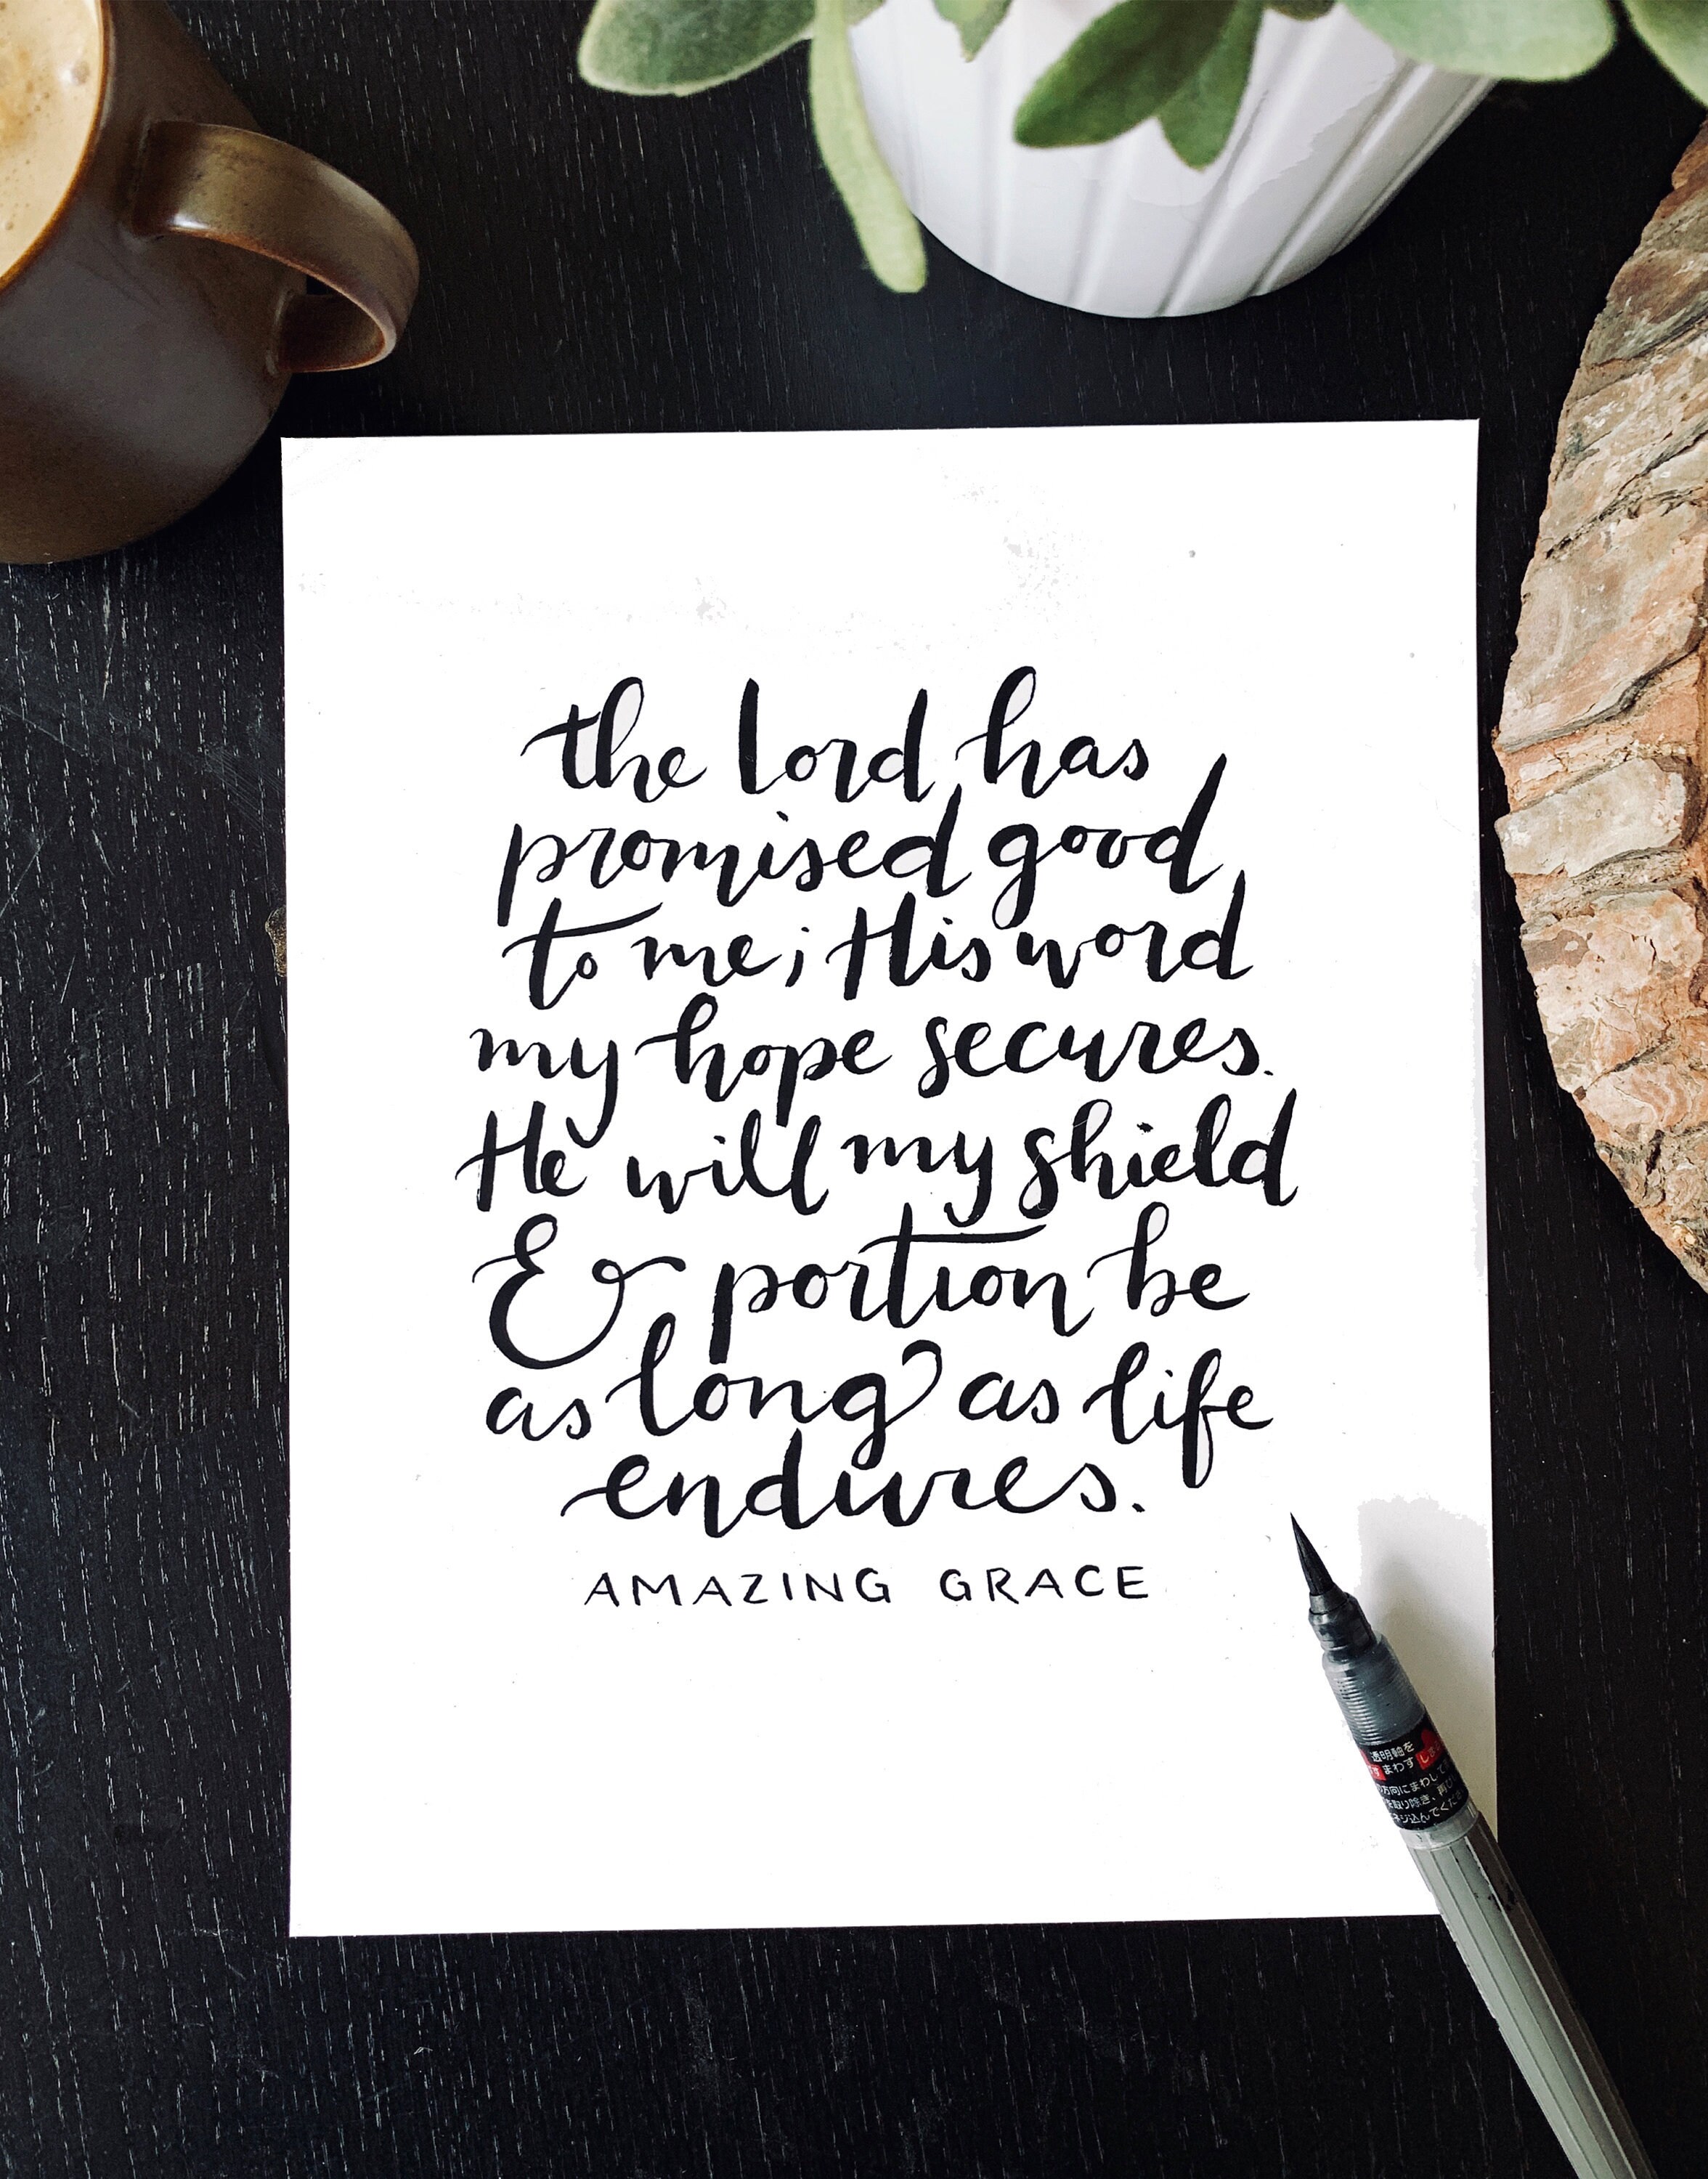 the lord has
promised good
to me; His word
my hope secures.
He will my shield
& portion be
as long as life
endures.
AMAZING GRACE
透明軸を
まわす
方向にまわして
取り除き、再び
ネジ込んでくだ